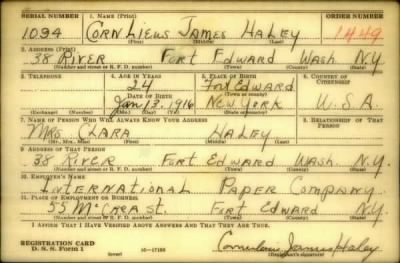 SERIAL NUMBER 1. NAME (Print) ORDER NUMBER
1094 CORNLIEUS JAMES HALEY 1449
(First) (Middle) (Last)
2. ADDRESS (Print)
38 RIVER FORT EDWARD WASH N.Y.
(Number and street or R. F. D. number) (Town) (County) (State)
3. TELEPHONE 4. AGE IN YEARS 5. PLACE OF BIRTH 6. COUNTRY OF CITIZENSHIP
24 Fort EDWARD
DATE OF BIRTH (Town or county)
Jan 13. 1916 NEW YORK U.S.A
(Exchange) (Number) (Mo.) (Day) (Yr.) (State or country)
7. NAME OF PERSON WHO WILL ALWAYS KNOW YOUR ADDRESS 8. RELATIONSHIP OF THAT PERSON
MRS CLARA HALEY
(Mr., Mrs., Miss) (First) (Middle) (Last)
9. ADDRESS OF THAT PERSON
38 RIVER FORT EDWARD WASH N.Y.
(Number and street or R. F. D. number) (Town) (County) (State)
10. EMPLOYER'S NAME
INTERNATIONAL PAPER COMPANY
11. PLACE OF EMPLOYMENT OR BUSINESS
55 McCREA ST. FORT EDWARD N.Y.
(Number and street or R. F. D. number) (Town) (County) (State)
I AFFIRM THAT I HAVE VERIFIED ABOVE ANSWERS AND THAT THEY ARE TRUE.
REGISTRATION CARD
D. S. S. Form 1 (over) 16—17105 Cornelieus James Haley
(Registrant's signature)